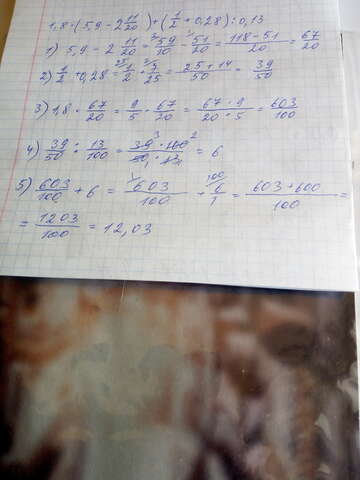 1,8 · (5,9 - 2 11/20) + (1/2 + 0,28) : 0,13
1) 5,9 - 2 11/20 = 59/10 - 51/20 = 118-51/20 = 67/20
2) 1/2 + 0,28 = 1/2 + 7/25 = 25+14/50 = 39/50
3) 1,8 · 67/20 = 9/5 · 67/20 = 67·9/20·5 = 603/100
4) 39/50 : 13/100 = 39·100/50·13 = 6
5) 603/100 + 6 = 603/100 + 6/1 = 603+600/100 =
= 1203/100 = 12,03